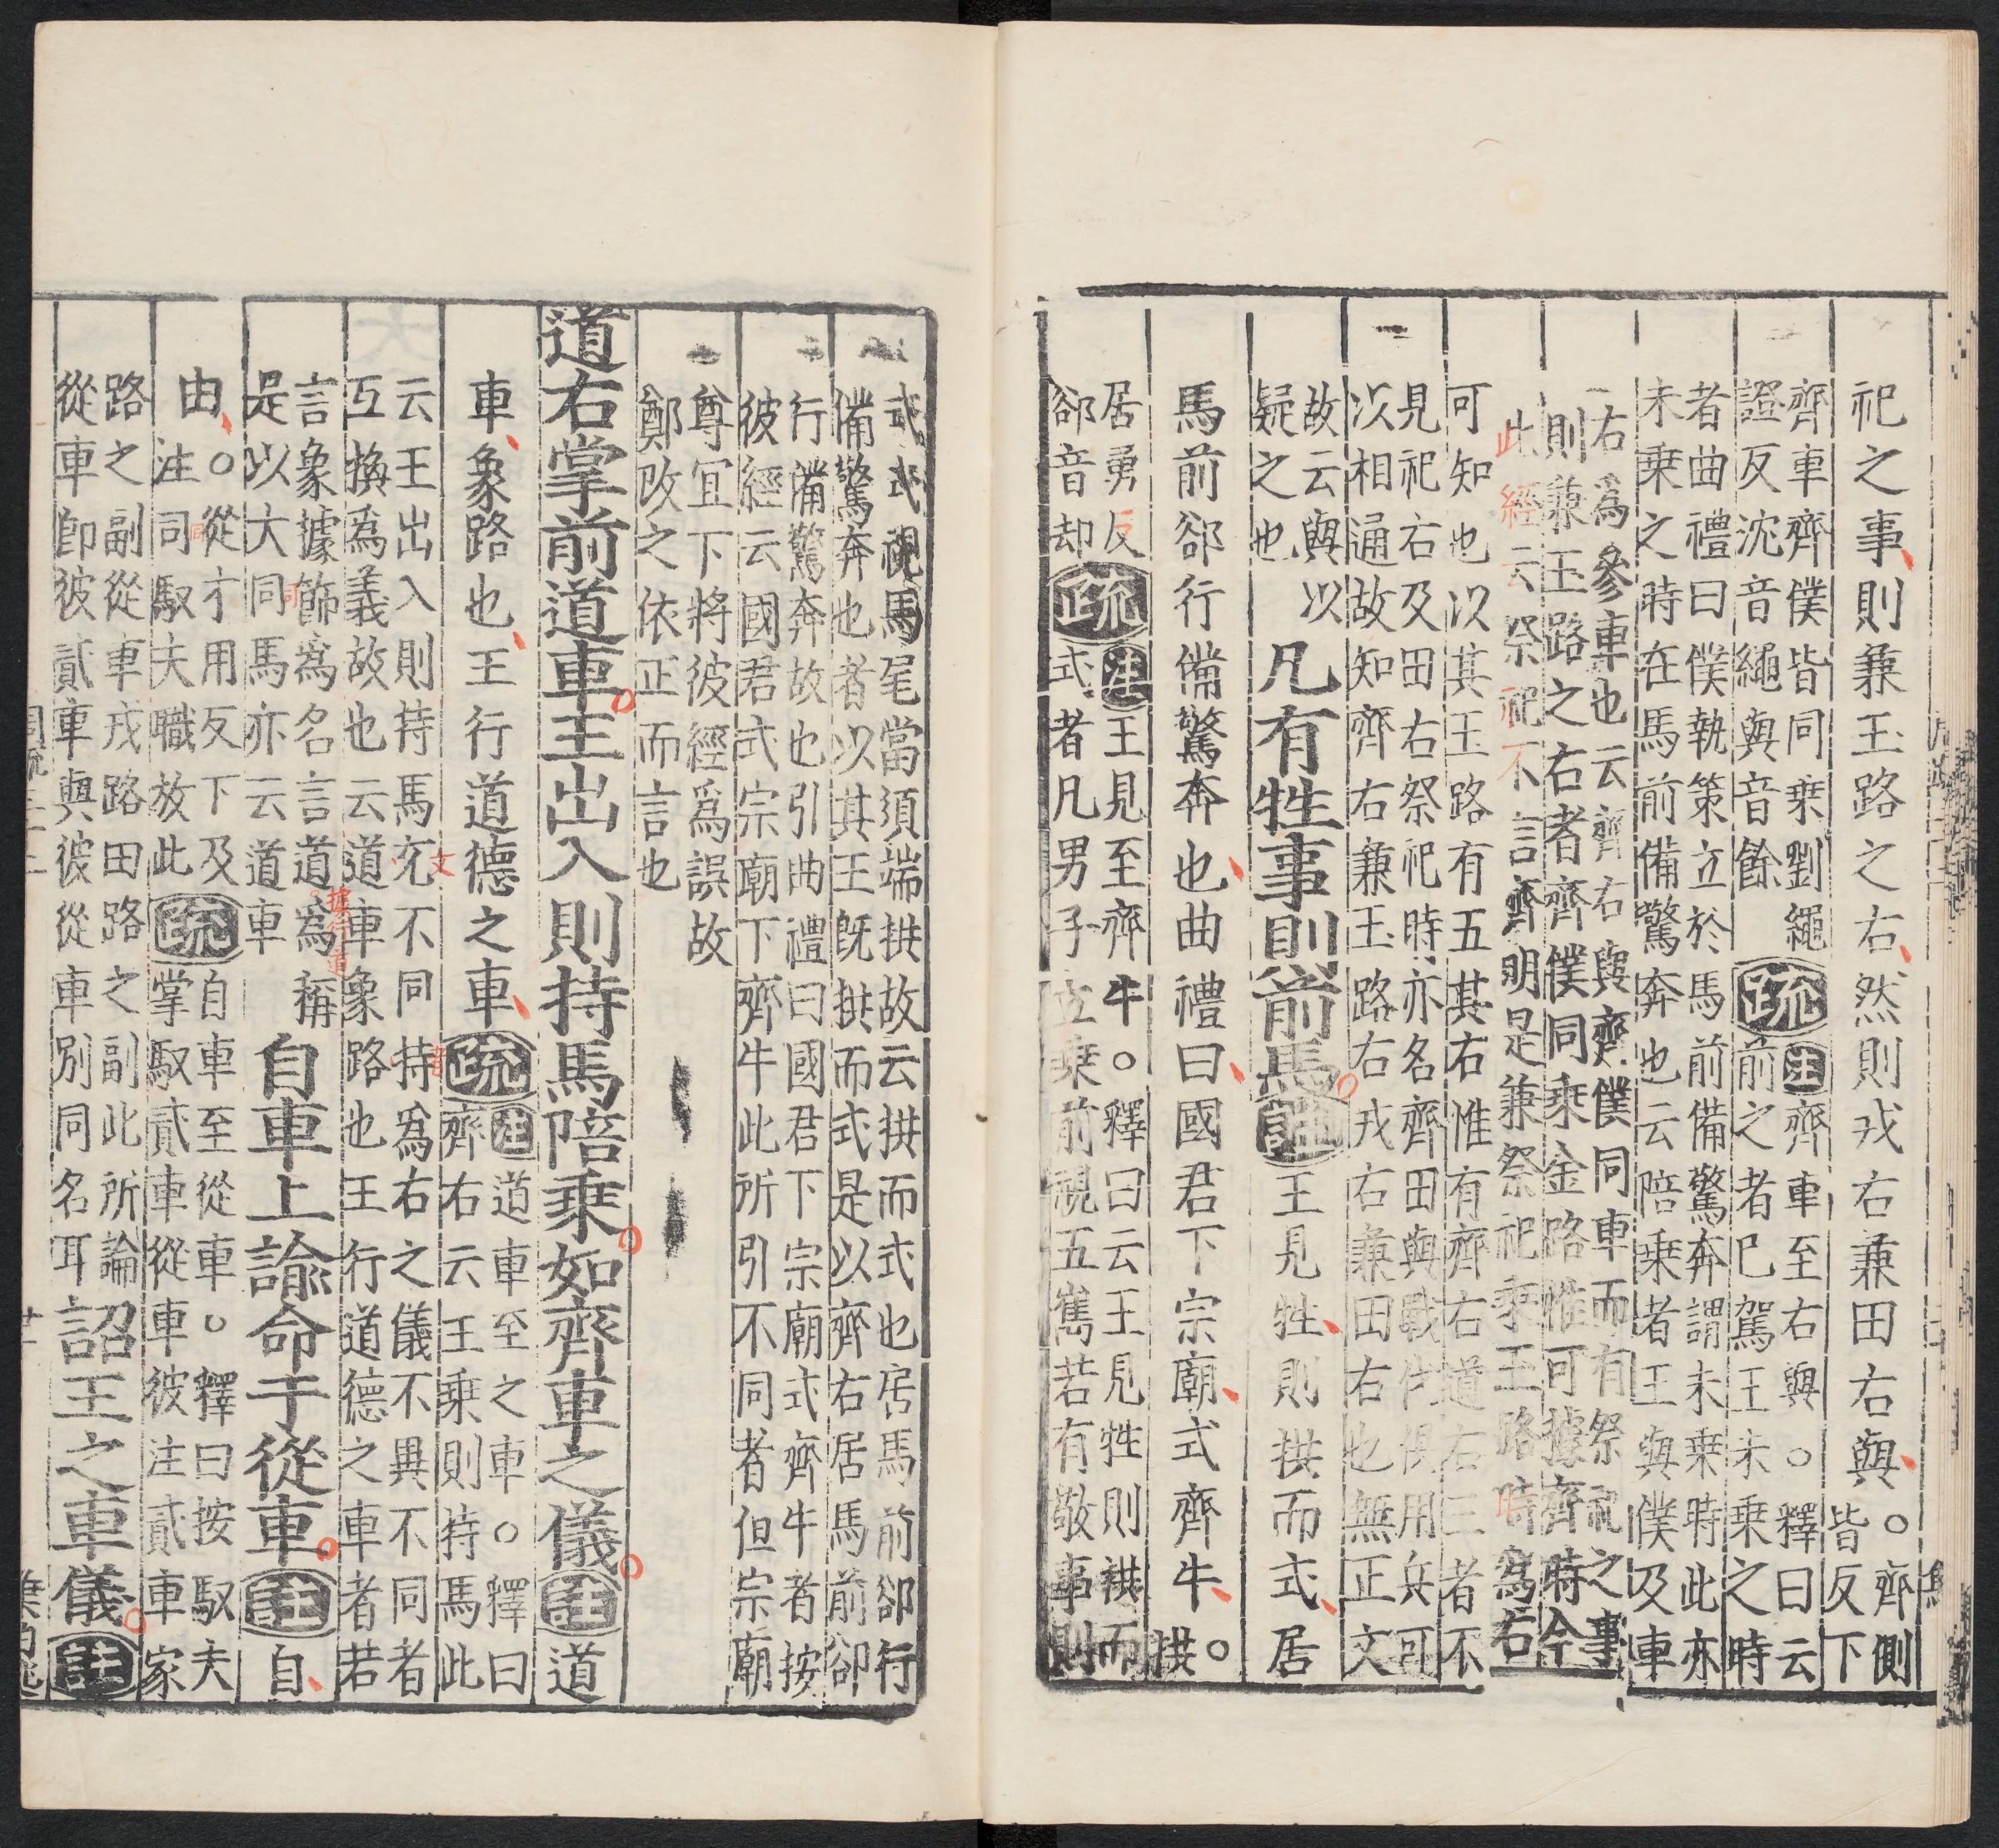 祀之事則兼玉路之右然則戎右兼田右與。齊側
皆反下
齊車齊僕皆同乗劉繩
證反沈音繩與音餘疏注齊車至右與。釋曰云
前之者巳駕王未乗之時
者曲禮曰僕執策立於馬前備驚奔謂未乗時此亦
未乗之時在馬前備驚奔也云陪乗者王與僕及車
右為參車也云齊右與齊僕同車而有祭祀之事
則兼玉路之右者齊僕同乗金路惟可據齊時今
此經云祭祀不言齊明是兼祭祀乗玉路時為右
可知也以其玉路有五其右惟有齊右道右三者不
見祀右及田右祭祀時亦名齊田與戰伐俱用兵可
以相通故知齊右兼玉路右戎右兼田右也無正文
故云與以
疑之也
凡有牲事則前馬註王見牲則拱而式居
馬前郤行備驚奔也曲禮曰國君下宗廟式齊牛。拱
居勇反
郤音却疏注王見至齊牛。釋曰云王見牲則拱而
式者凡男子立乗前視五嶲若有敬事則
式式視馬尾當須端拱故云拱而式也居馬前郤行
備驚奔也者以其王旣拱而式是以齊右居馬前卻
行備驚奔故也引曲禮曰國君下宗廟式齊牛者按
彼經云國君式宗廟下齊牛此所引不同者但宗廟
尊冝下將彼經爲誤故
鄭改之依正而言也
道右掌前道車王出入則持馬陪乗如齊車之儀註道
車象路也王行道德之車疏注道車至之車。釋曰
齊右云王乗則持馬此
云王出入則持馬文不同持者爲右之儀不異不同者
互換爲義故也云道車象路也王行道德之車者若
言象據飾爲名言道據行道爲稱
是以大司馬亦云道車
自車上諭命于從車註自
由。從才用反下及
注同馭夫職放此疏自車至從車。釋曰按馭夫
掌馭貳車從車彼注貳車象
路之副從車戎路田路之副此所論
從車卽彼貳車與彼從車別同名耳
詔王之車儀註